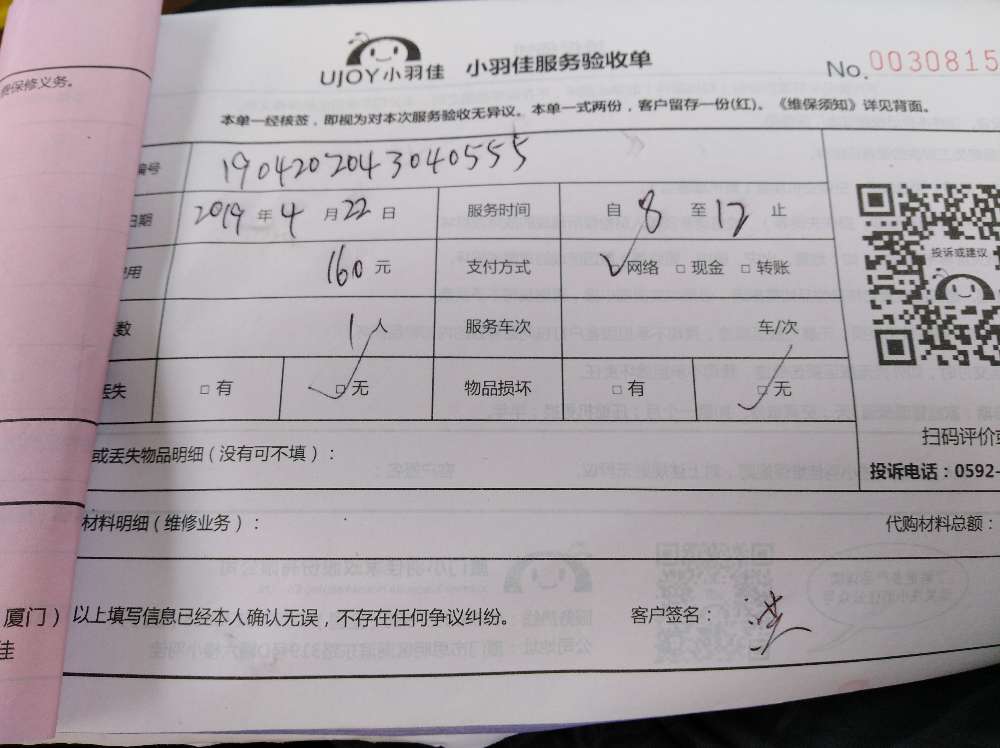 表保修义务。
UJOY小羽佳 小羽佳服务验收单 No. 0030815
本单一经核签，即视为对本次服务验收无异议。本单一式两份，客户留存一份(红)。《维保须知》详见背面。
编号 190420204304 0555
日期 2019 年 4 月 22 日 服务时间 自 8 至 12 止
用 160 元 支付方式 ☑网络 □现金 □转账
数 1 人 服务车次 车/次
丢失 □有 ☑无 物品损坏 □有 ☑无
投诉或建议
扫码评价或
投诉电话：0592-
或丢失物品明细（没有可不填）：
材料明细（维修业务）： 代购材料总额：
厦门）以上填写信息已经本人确认无误，不存在任何争议纠纷。 客户签名：
佳